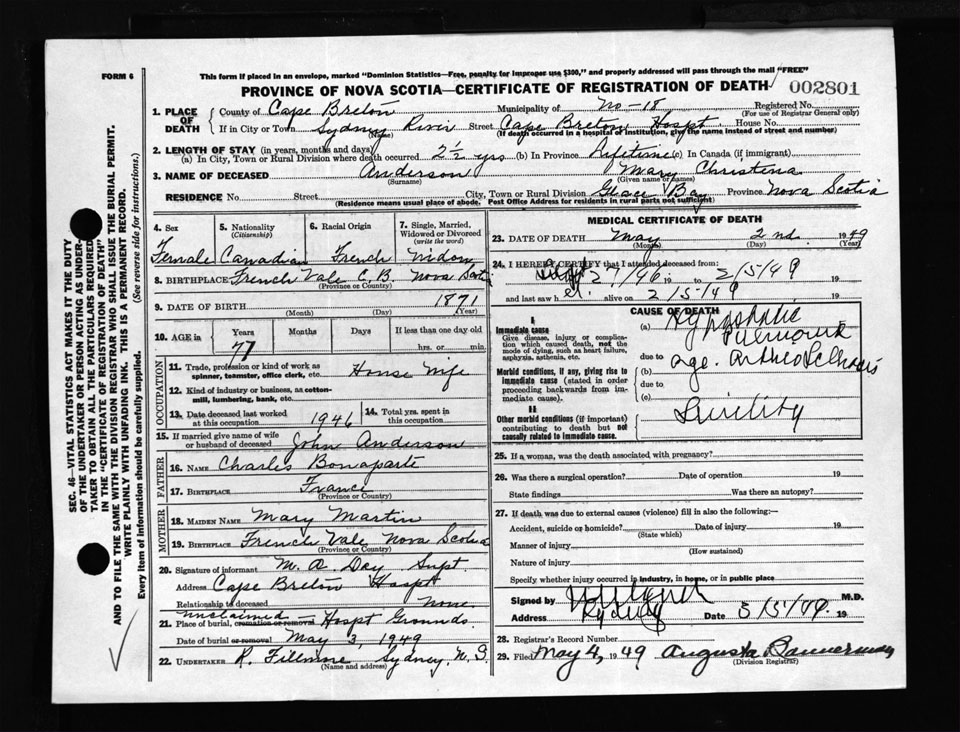 FORM 6
This form if placed in an envelope, marked "Dominion Statistics—Free, penalty for improper use $300," and properly addressed will pass through the mail "FREE"
PROVINCE OF NOVA SCOTIA—CERTIFICATE OF REGISTRATION OF DEATH 002801
SEC. 46—VITAL STATISTICS ACT MAKES IT THE DUTY
OF THE UNDERTAKER OR PERSON ACTING AS UNDER-
TAKER TO OBTAIN ALL THE PARTICULARS REQUIRED
IN THE "CERTIFICATE OF REGISTRATION OF DEATH"
AND TO FILE THE SAME WITH THE DIVISION REGISTRAR WHO SHALL ISSUE THE BURIAL PERMIT.
WRITE PLAINLY WITH UNFADING INK. THIS IS A PERMANENT RECORD.
Every item of information should be carefully supplied. (See reverse side for instructions.)
1. PLACE OF DEATH County of Cape Breton Municipality of No-18 Registered No.
(For use of Registrar General only)
If in City or Town Sydney River Street Cape Breton Hospt. House No.
(Name) (If death occurred in a hospital or institution, give the name instead of street and number)
2. LENGTH OF STAY (in years, months and days)
(a) In City, Town or Rural Division where death occurred 2½ yrs (b) In Province Lifetime (c) In Canada (if immigrant)
3. NAME OF DECEASED Anderson Mary Christena
(Surname) (Given name or names)
RESIDENCE No. Street City, Town or Rural Division Glace Bay Province Nova Scotia
(Residence means usual place of abode. Post Office Address for residents in rural parts not sufficient)
4. Sex 5. Nationality (Citizenship) 6. Racial Origin 7. Single, Married, Widowed or Divorced (write the word)
Female Canadian French Widow
8. BIRTHPLACE French Vale C.B. Nova Scotia
(Province or Country)
9. DATE OF BIRTH 1871
(Month) (Day) (Year)
10. AGE in Years Months Days If less than one day old
77 hrs. or min.
OCCUPATION
11. Trade, profession or kind of work as spinner, teamster, office clerk, etc. House Wife
12. Kind of industry or business, as cotton-mill, lumbering, bank, etc.
13. Date deceased last worked at this occupation 1946 14. Total yrs. spent in this occupation
15. If married give name of wife or husband of deceased John Anderson
FATHER
16. NAME Charles Bonaparte
17. BIRTHPLACE France
(Province or Country)
MOTHER
18. MAIDEN NAME Mary Martin
19. BIRTHPLACE French Vale Nova Scotia
(Province or Country)
20. Signature of informant M. A. Day Supt.
Address Cape Breton Hospt
Relationship to deceased None.
unclaimed
21. Place of burial, cremation or removal Hospt Grounds.
Date of burial or removal May 3, 1949
22. UNDERTAKER R. Fillmore Sydney N.S.
(Name and address)
MEDICAL CERTIFICATE OF DEATH
23. DATE OF DEATH May 2nd. 1949
(Month) (Day) (Year)
24. I HEREBY CERTIFY that I attended deceased from
19 to 2/5/49 19
and last saw h er alive on 2/5/49 19
CAUSE OF DEATH
I
Immediate cause
Give disease, injury or complication which caused death, not the mode of dying, such as heart failure, asphyxia, asthenia, etc.
(a) Hypostatic
due to
Morbid conditions, if any, giving rise to immediate cause (stated in order proceeding backwards from immediate cause).
(b) age.
due to
(c)
II
Other morbid conditions (if important) contributing to death but not causally related to immediate cause.
Senility
25. If a woman, was the death associated with pregnancy?
26. Was there a surgical operation? Date of operation 19
State findings Was there an autopsy?
27. If death was due to external causes (violence) fill in also the following:—
Accident, suicide or homicide? Date of injury 19
(State which)
Manner of injury
(How sustained)
Nature of injury
Specify whether injury occurred in industry, in home, or in public place
Signed by M.D.
Address Sydney Date 3/5/49 19
28. Registrar's Record Number
29. Filed May 4, 1949 Augusta Bannerman
(Division Registrar)